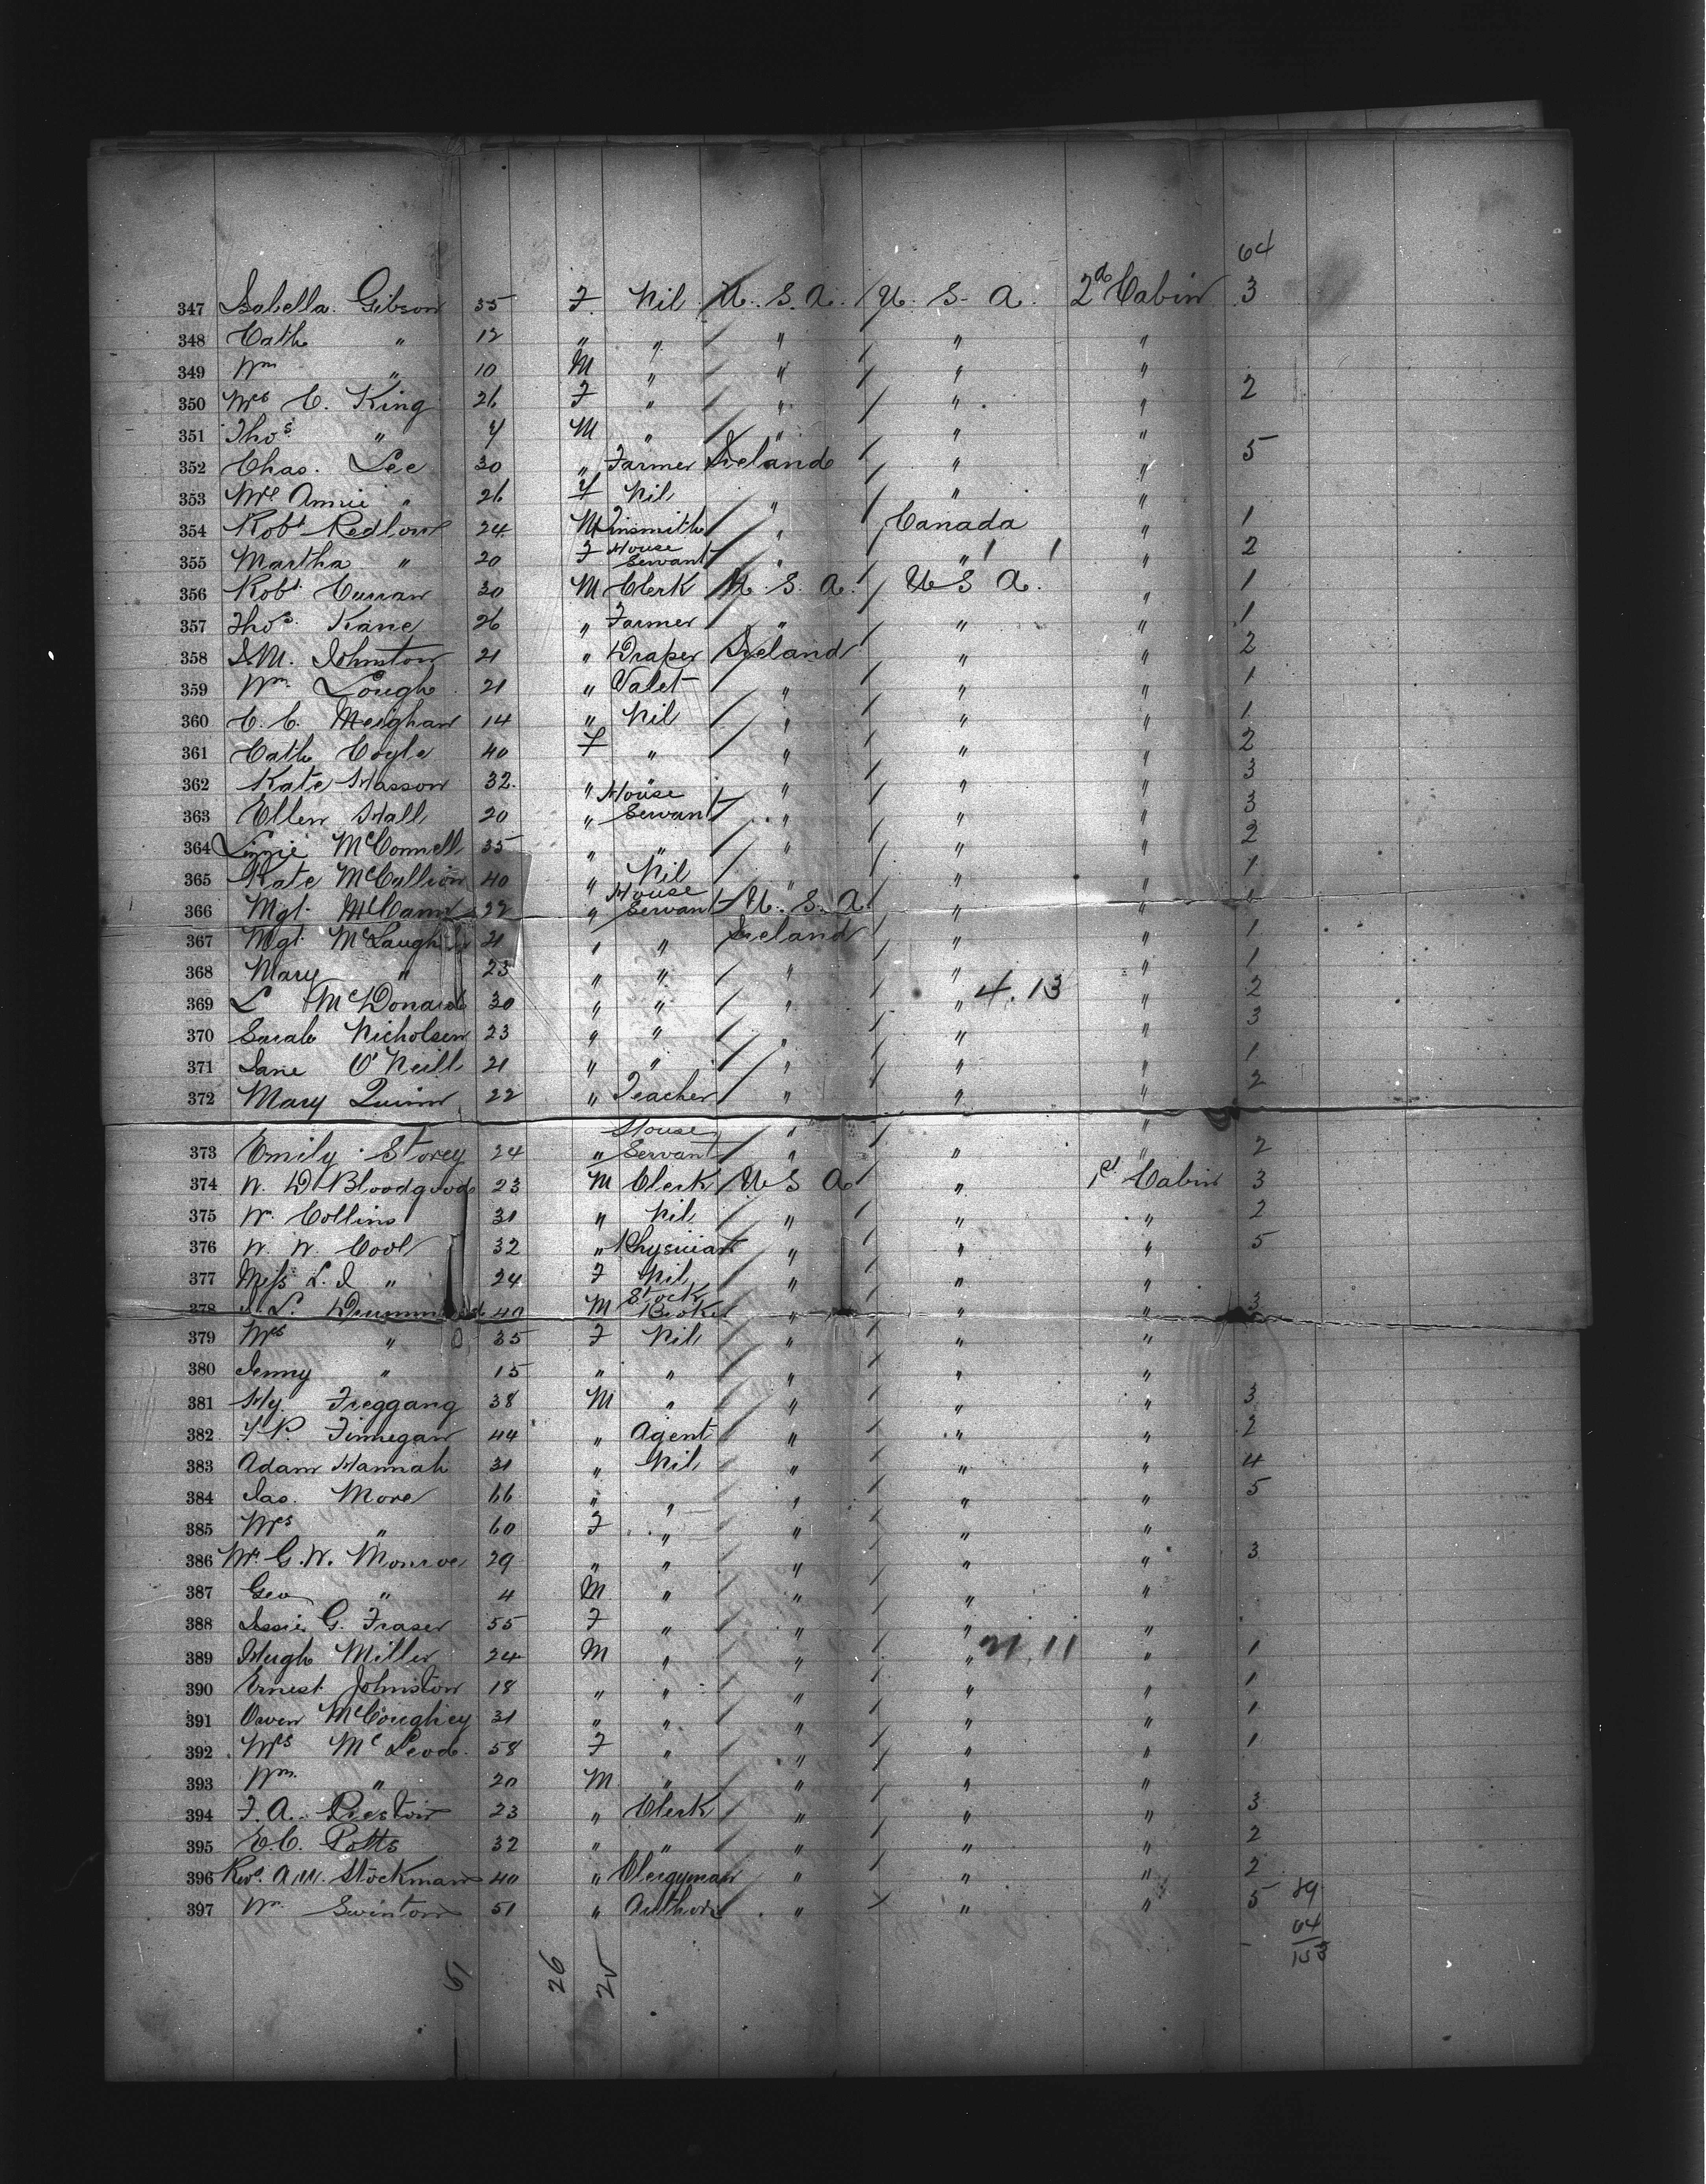 64
347 Isabella Gibson 35 F. Nil U. S. A. U. S. A. 2d Cabin 3
348 Cath " 12 " " " " "
349 Wm " 10 M " " " "
350 Mrs C. King 26 F " " " " 2
351 Thos " 4 M " " " "
352 Chas. Lee 30 " Farmer Ireland " " 5
353 Mrs Annie " 26 F Nil " " "
354 Robt Redlow 24 M Tinsmith " Canada " 1
355 Martha " 20 F House Servant " " " 2
356 Robt Curran 30 M Clerk U. S. A. U S A. " 1
357 Thos Kane 26 " Farmer " " " 1
358 Johnston 21 " Draper Ireland " " 2
359 Wm Lough 21 " Valet " " " 1
360 C. C. Meighan 14 " Nil " " " 1
361 Cath Coyle 40 F " " " " 2
362 Kate Hasson 32 " " " " " 3
363 Ellen Hall 20 " House Servant " " " 3
364 Lizzie McConnell 35 " " " " " 2
365 Kate McCallion 40 " Nil " " " 1
366 Mgt. McCann 22 " House Servant U. S. A " "
367 Mgt. McLaugh 21 " " Ireland " " 1
368 Mary " 23 " " " " " 1
369 L McDonald 30 " " " " 4.13 " 2
370 Sarah Nicholson 23 " " " " " 3
371 Jane O'Neill 21 " " " " " 1
372 Mary Quinn 22 " Teacher " " " 2
373 Emily Storey 24 " House Servant " " " 2
374 W. D Bloodgood 23 M Clerk U S A " 1st Cabin 3
375 W. Collins 31 " Nil " " " 2
376 W. W. Cool 32 " Physician " " " 5
377 L. I " 24 F Nil " " "
378 L. Drummond 40 M Stock Broker " " " 3
379 Mrs " 35 F Nil " " "
380 Jenny " 15 " " " " "
381 Hy. Freggang 38 M " " " " 3
382 P. Finnegan 44 " Agent " " " 2
383 Adam Hannah 31 " Nil " " " 4
384 Jas. More 66 " " " " " 5
385 Mrs " 60 F " " " "
386 G. W. Monroe 29 " " " " " 3
387 Geo " 4 M " " " "
388 Jessie G. Fraser 55 F " " " "
389 Hugh Miller 24 M " " " 11 " 1
390 Ernest Johnston 18 " " " " " 1
391 Owen McCoughey 31 " " " " " 1
392 Mrs McLeod. 58 F " " " " 1
393 Wm. " 20 M " " " "
394 F. A. Preston 23 " Clerk " " " 3
395 E. C. Potts 32 " " " " " 2
396 Revd. A. M. Stockman 40 " Clergyman " " " 2
397 Wm Swinton 51 " Author " " " 5 89
64
153
51 26 25